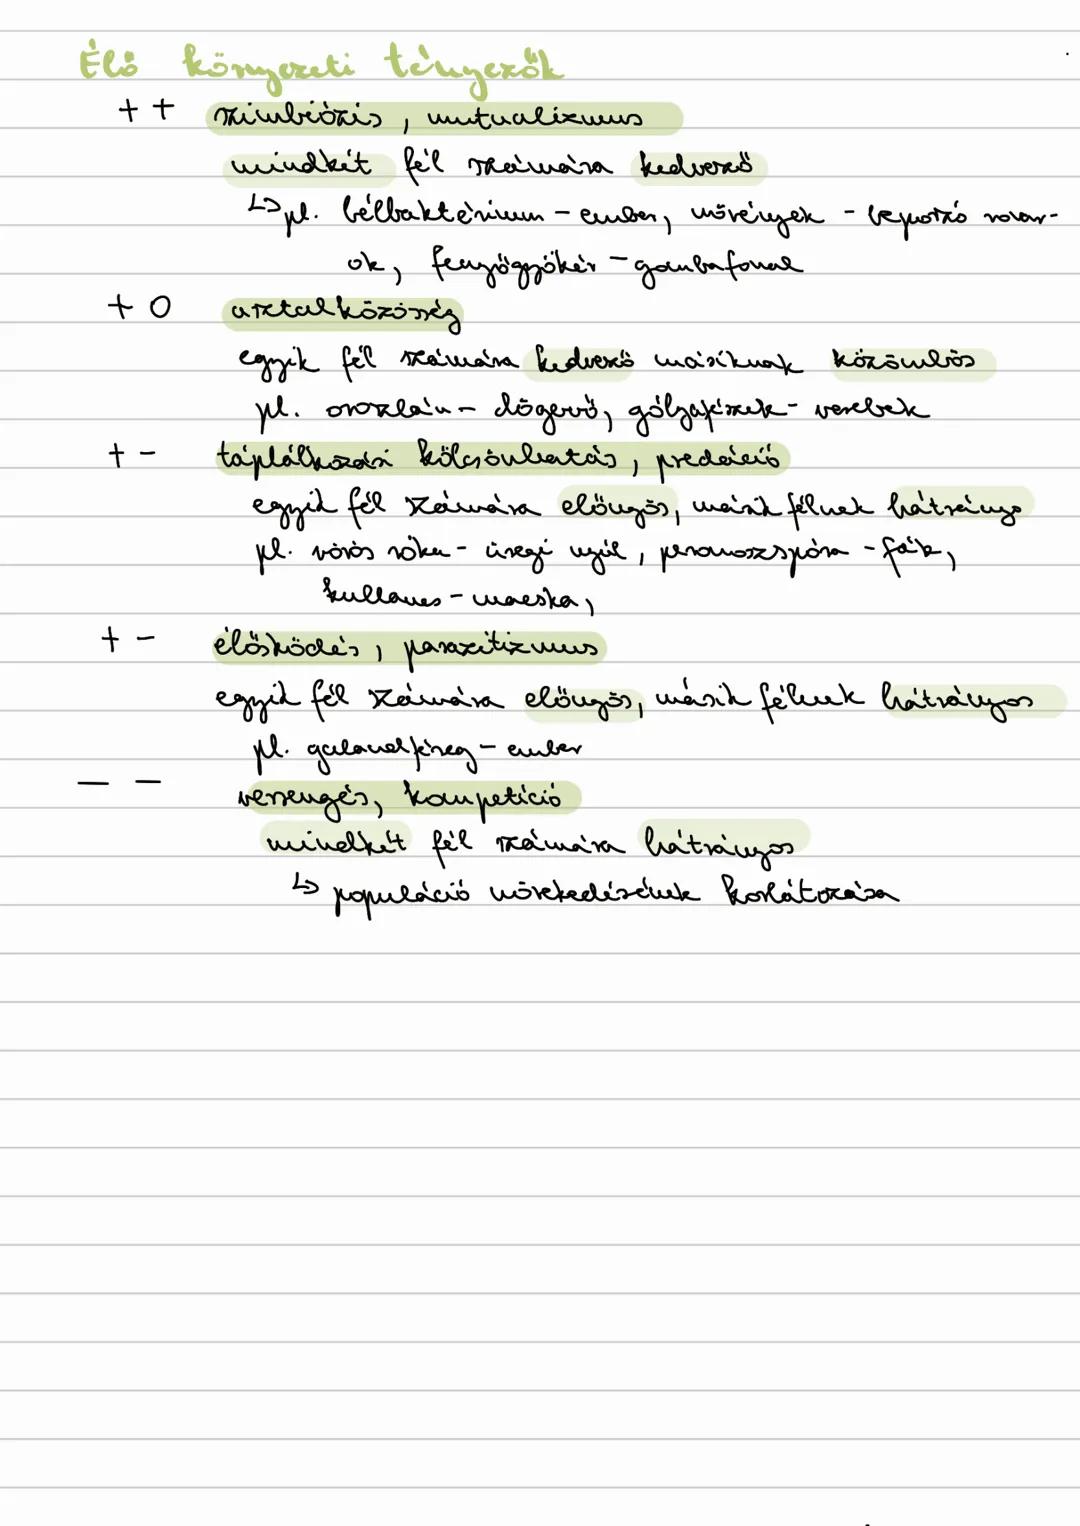 Élő környezeti tényezők
+ + szimbiózis, mutualizmus
mindkét fél számára kedvező
↳ pl. bélbaktérium – ember, növények – beporzó rovar-
ok, fenyőgyökér – gombafonal
+ 0 asztalközösség
egyik fél számára kedvező másiknak közömbös
pl. oroszlán – dögevő, gólyafészek – verebek
+ - táplálkozási kölcsönhatás, predáció
egyik fél számára előnyös, másik félnek hátrányo
pl. vörös róka – üregi nyúl, peronoszspóra – fák,
kullancs – macska,
+ - élősködés, parazitizmus
egyik fél számára előnyös, másik félnek hátrányos
pl. galandféreg – ember
– – versengés, kompetíció
mindkét fél számára hátrányos
↳ populáció növekedésének korlátozása